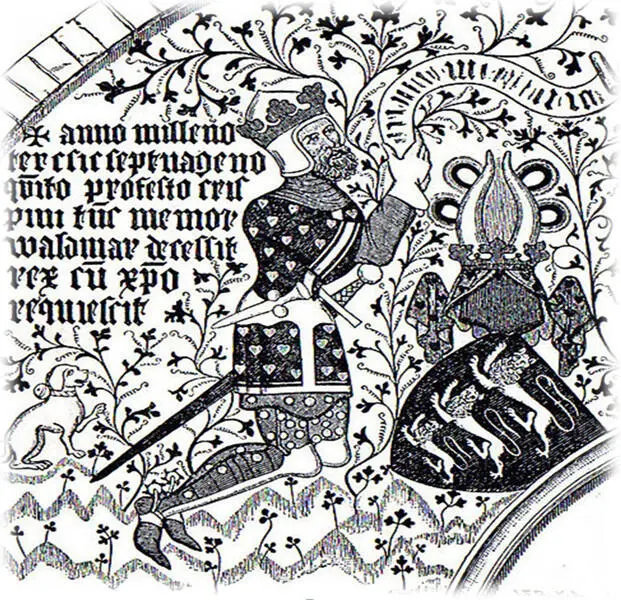 ✠ anno milleno
ter c sic septuageno
qūito profesto cris
pini tūc memor
waldmar decessit
rex cū xp̄o
requiescit